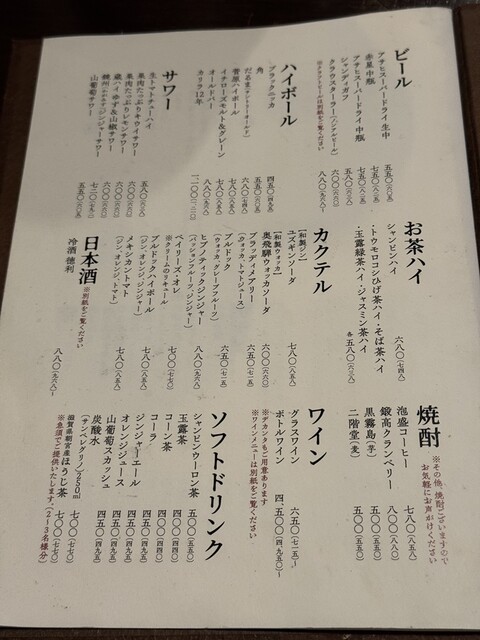 ビール
アサヒスーパードライ 生中 五五〇(六〇五)
赤星 中瓶 七五〇(八二五)
アサヒスーパードライ 中瓶 七五〇(八二五)
シャンディガフ 六〇〇(六六〇)
クラウスターラー(ノンアルビール) 六〇〇(六六〇)
※クラフトビールは別紙をご覧ください 八八〇(九六八)〜
ハイボール
ブラックニッカ 四五〇(四九五)
角 五五〇(六〇五)
だるま(サントリーオールド) 六八〇(七四八)
菅原ハイボール
イチローズモルト&グレーン
オールドパー 八八〇(九六八)
カリラ12年 一二〇〇(一三二〇)
サワー
生トマトチューハイ 五八〇(六三八)
果肉たっぷりキウイサワー 六〇〇(六六〇)
果肉たっぷりレモンサワー 六〇〇(六六〇)
蔵ハイ ゆず&山椒サワー
ジンジャーサワー 七二〇(七九二)
山葡萄サワー 五五〇(六〇五)
お茶ハイ
シャンピンハイ 六八〇(七四八)
・トウモロコシひげ茶ハイ・そば茶ハイ
・玉露緑茶ハイ・ジャスミン茶ハイ 各 五八〇(六三八)
カクテル
【和製ジン】
ユズキンソーダ 七八〇(八五八)
【和製ウォッカ】
奥飛騨ウォッカソーダ 六〇〇(六六〇)
ブラッディメアリー
(ウォッカ、トマトジュース) 六五〇(七一五)
ブルドック
(ウォッカ、グレープフルーツ) 六五〇(七一五)
ヒプノティックジンジャー
(パッションフルーツ、ジンジャー) 八八〇(九六八)
ベイリーズ・オレ
※クリームのリキュール 七〇〇(七七〇)
ブルドックハイボール
(ジン、オレンジ、ジンジャー) 七八〇(八五八)
メキシカントマト
(ジン、オレンジ、トマト) 七八〇(八五八)
日本酒 ※別紙をご覧ください
冷酒 徳利 八八〇(九六八)〜
焼酎 ※その他、焼酎ございますのでお気軽にお声がけください
泡盛コーヒー 七八〇(八五八)
鍛高クランベリー 八〇〇(八八〇)
黒霧島(芋) 五〇〇(五五〇)
二階堂(麦) 五〇〇(五五〇)
ワイン
グラスワイン 六五〇(七一五)〜
ボトルワイン 四、五〇〇(四、九五〇)〜
※デカンタもご用意あります
※ワインメニューは別紙をご覧ください
ソフトドリンク
シャンピンウーロン茶 五〇〇(五五〇)
玉露茶 四五〇(四九五)
コーン茶 四〇〇(四四〇)
コーラ 四〇〇(四四〇)
ジンジャーエール 四五〇(四九五)
オレンジジュース 四五〇(四九五)
山葡萄スカッシュ 四五〇(四九五)
炭酸水
(サンペレグリノ)250ml 七〇〇(七七〇)
滋賀県朝宮産ほうじ茶 七〇〇(七七〇)
※急須でご提供いたします。(2〜3名様分)